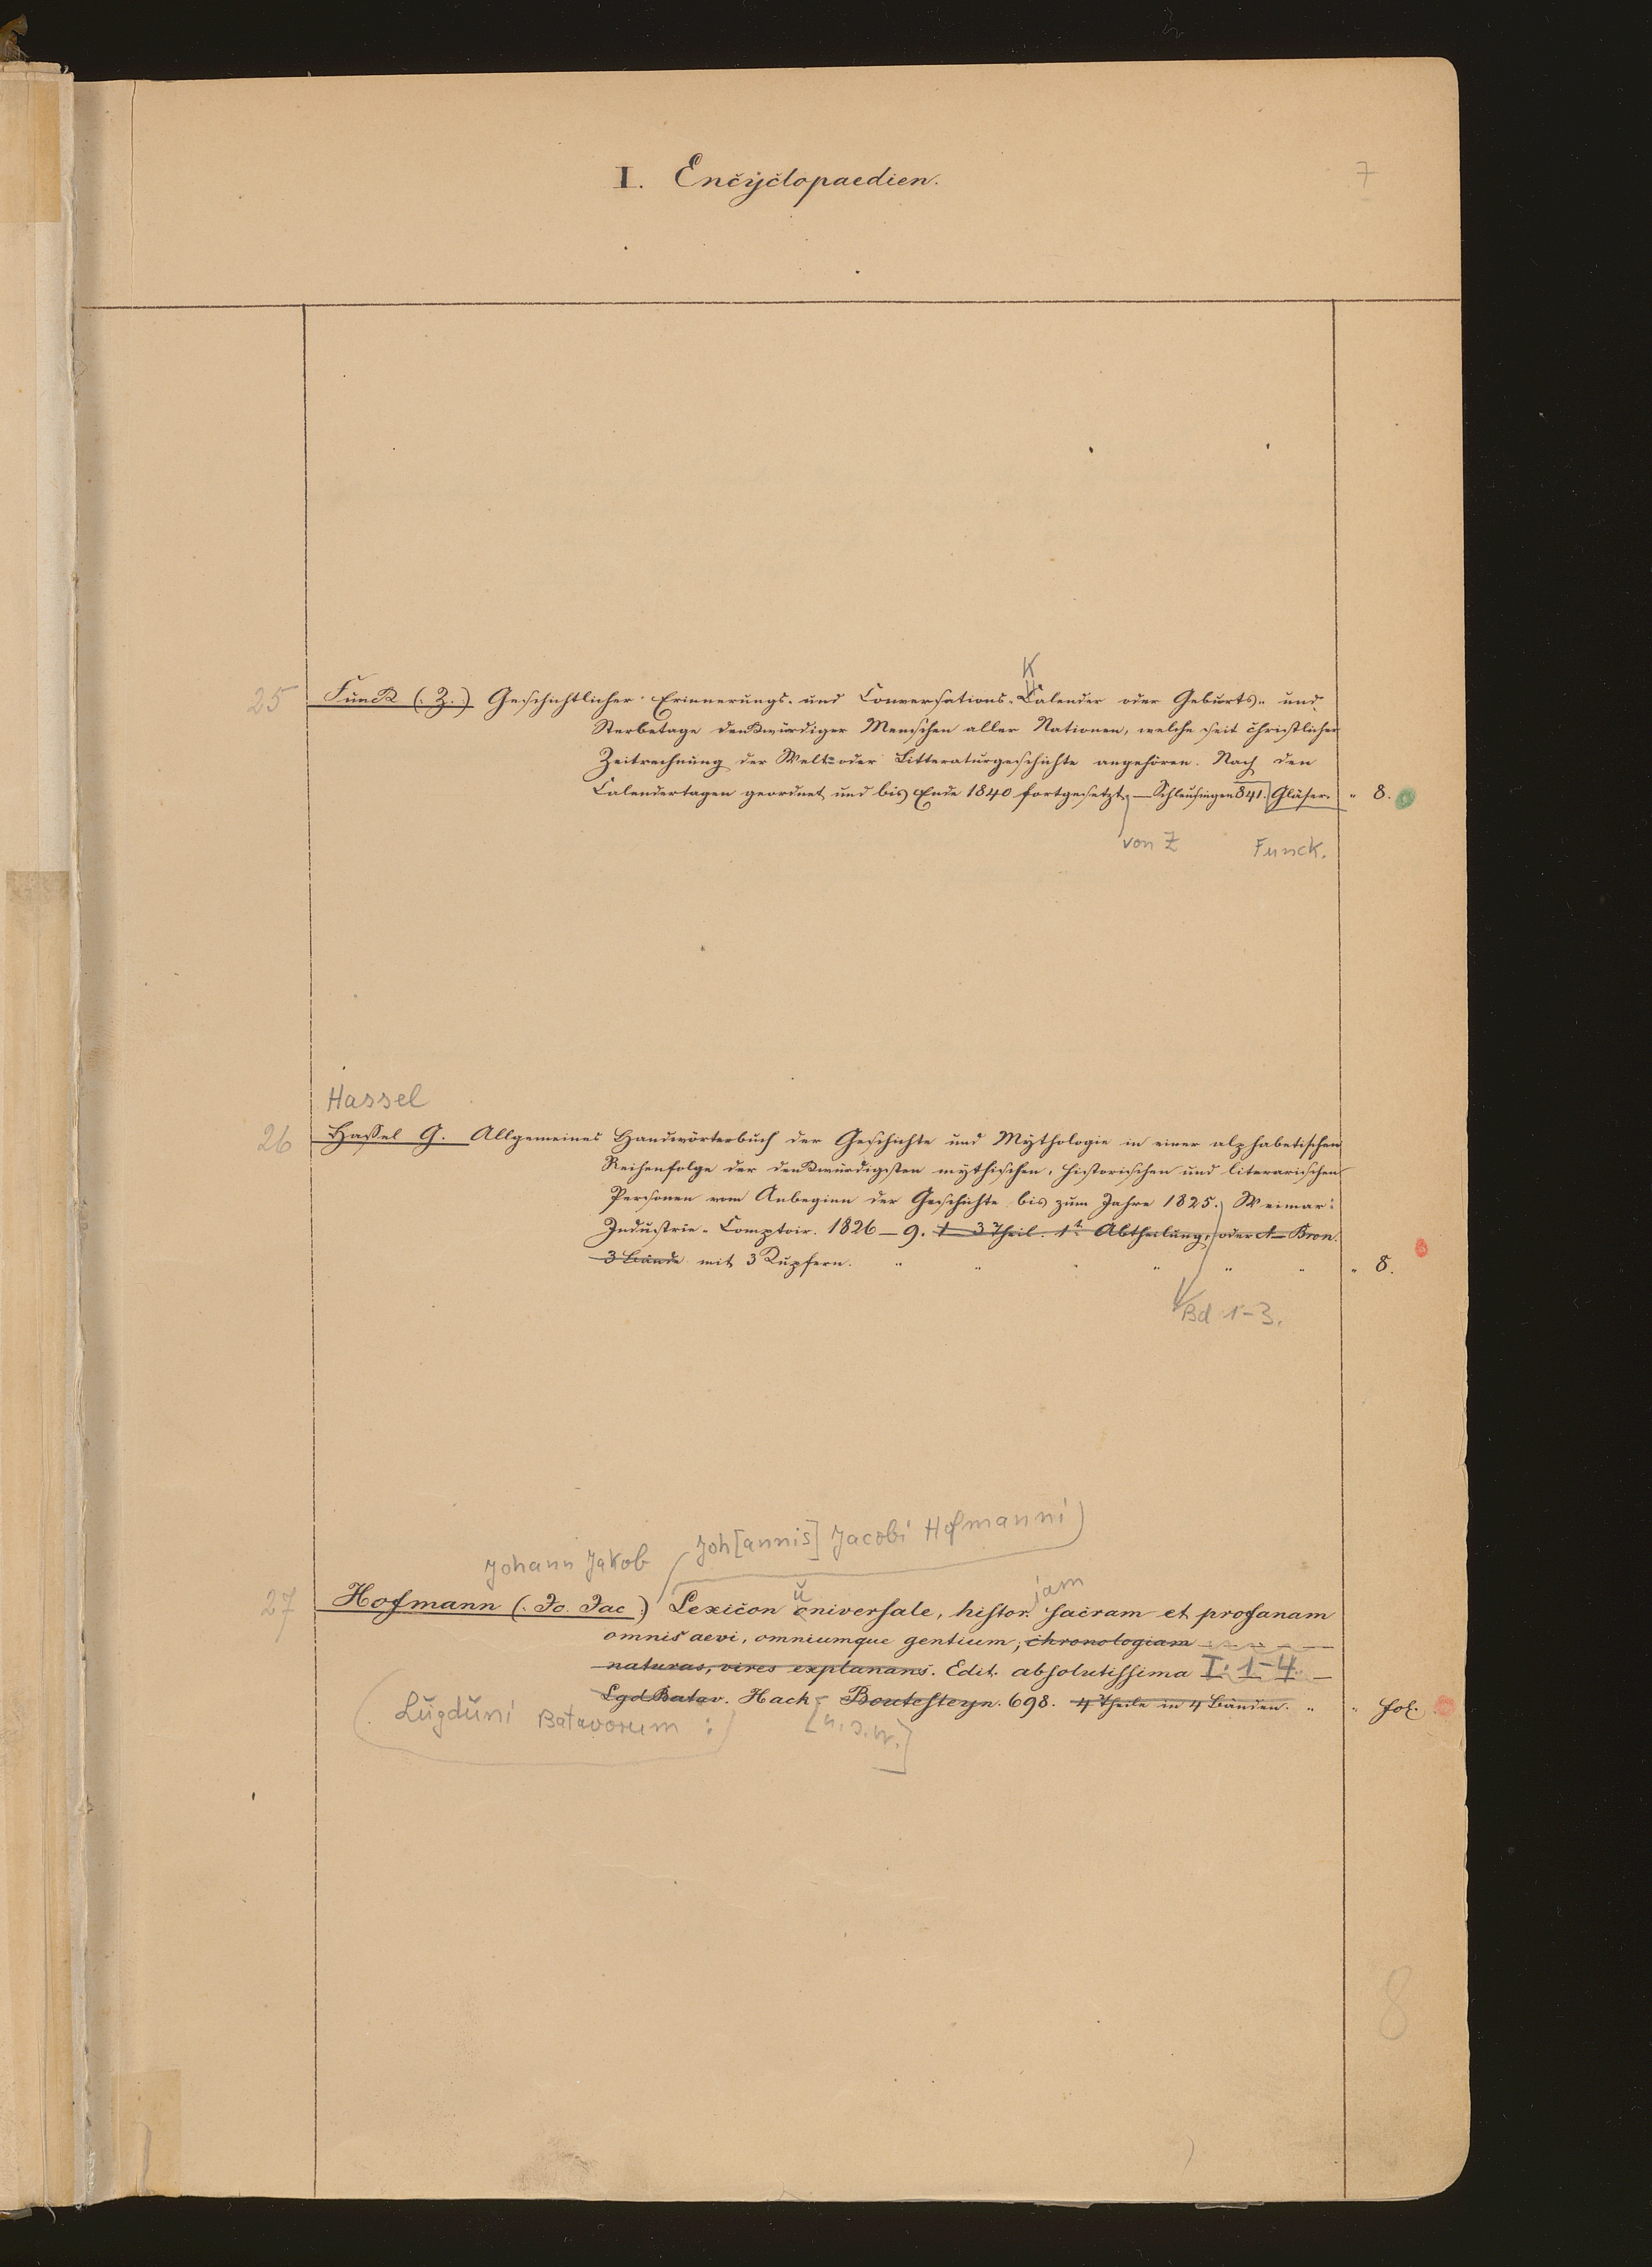 I. Encyclopaedien.
7
K
25 Funck (Z.) Geschichtlicher Erinnerungs- und Conversations-Calender oder Geburts- und
Sterbetage denkwürdiger Menschen aller Nationen, welche seit christlicher
Zeitrechnung der Welt- oder Litteraturgeschichte angehören. Nach den
Calendertagen geordnet und bis Ende 1840 fortgesetzt. — Schleusingen 841. Gläser. " 8.
von Z Funck.
Hassel
26 Hassel G. Allgemeines Handwörterbuch der Geschichte und Mythologie in einer alphabetischen
Reihenfolge der denkwürdigsten mythischen, historischen und literarischen
Personen vom Anbeginn der Geschichte bis zum Jahre 1825. Weimar:
Industrie-Comptoir. 1826–9. 1–3 Theil. 1te Abtheilung, oder A–Bron.
3 Bände mit 3 Kupfern. " " " " " " " 8.
Bd 1–3.
Joh[annis] Jacobi Hofmanni)
Johann Jakob
u jam
27 Hofmann (Jo. Jac.) Lexicon universale, histor. sacram et profanam
omnis aevi, omniumque gentium, chronologiam
naturas, vires explanans. Edit. absolutissima I: 1–4.
Lgd Batav. Hack, Boutesteyn. 698. 4 Theile in 4 Bänden. " " fol.
(Lugduni Batavorum:) [u.s.w.]
8